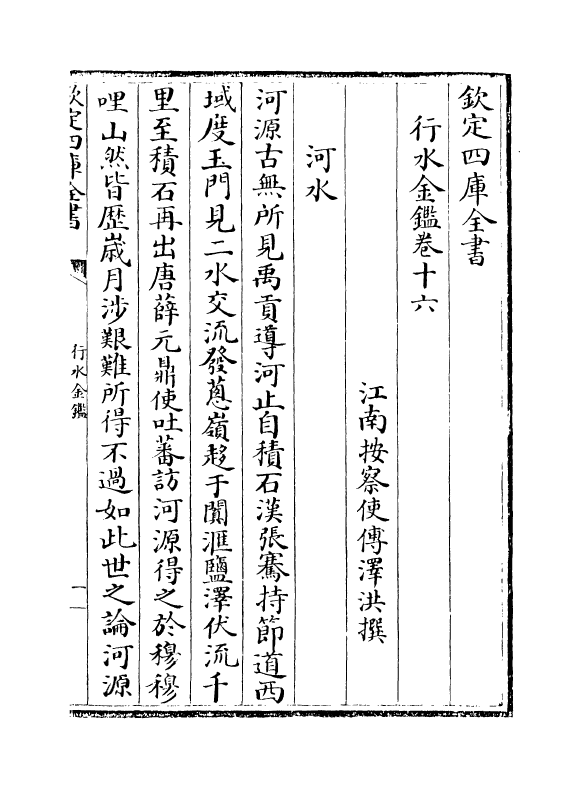 欽定四庫全書
行水金鑑卷十六
江南按察使傅澤洪撰
河水
河源古無所見禹貢導河止自積石漢張騫持節道西
域度玉門見二水交流發蔥嶺趍于闐滙鹽澤伏流千
里至積石再出唐薛元鼎使吐蕃訪河源得之於穆穆
哩山然皆歴嵗月涉艱難所得不過如此世之論河源
欽定四庫全書
行水金鑑
一